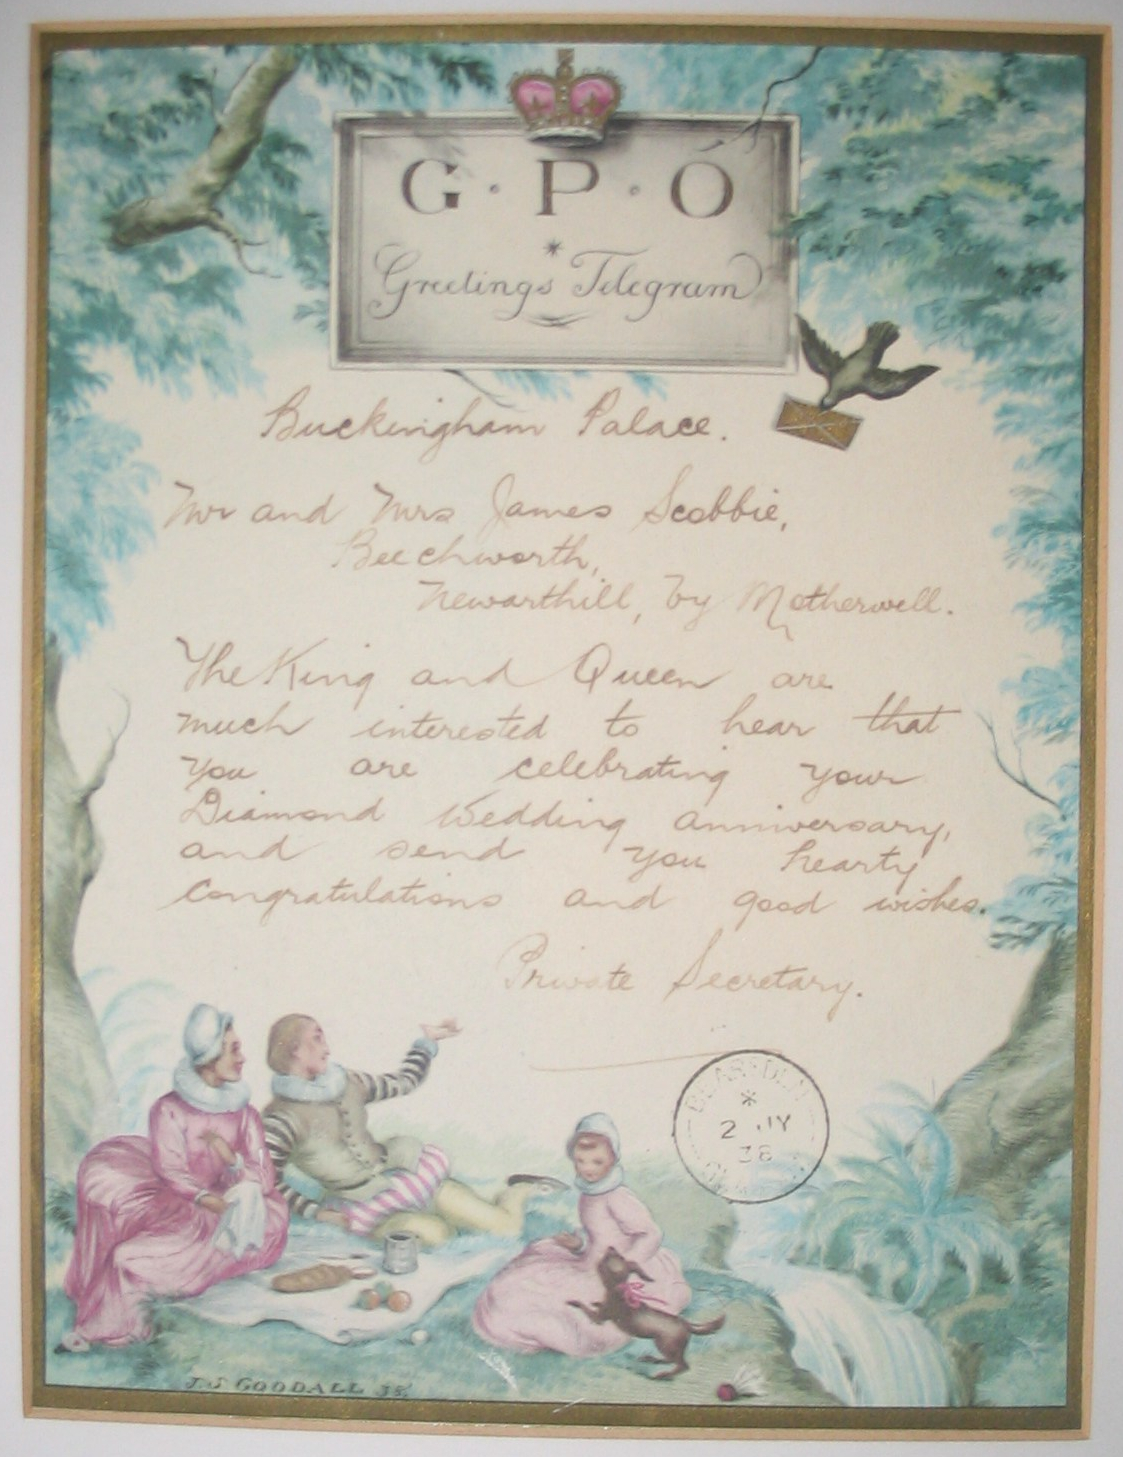 G·P·O
*
Greetings Telegram
Buckingham Palace.
Mr and Mrs James Scobbie,
Beechworth,
Newarthill, by Motherwell.
The King and Queen are
much interested to hear that
you are celebrating your
Diamond Wedding anniversary,
and send you hearty
congratulations and good wishes.
Private Secretary.
BEARSDEN
*
2 JY
38
J.S GOODALL 38